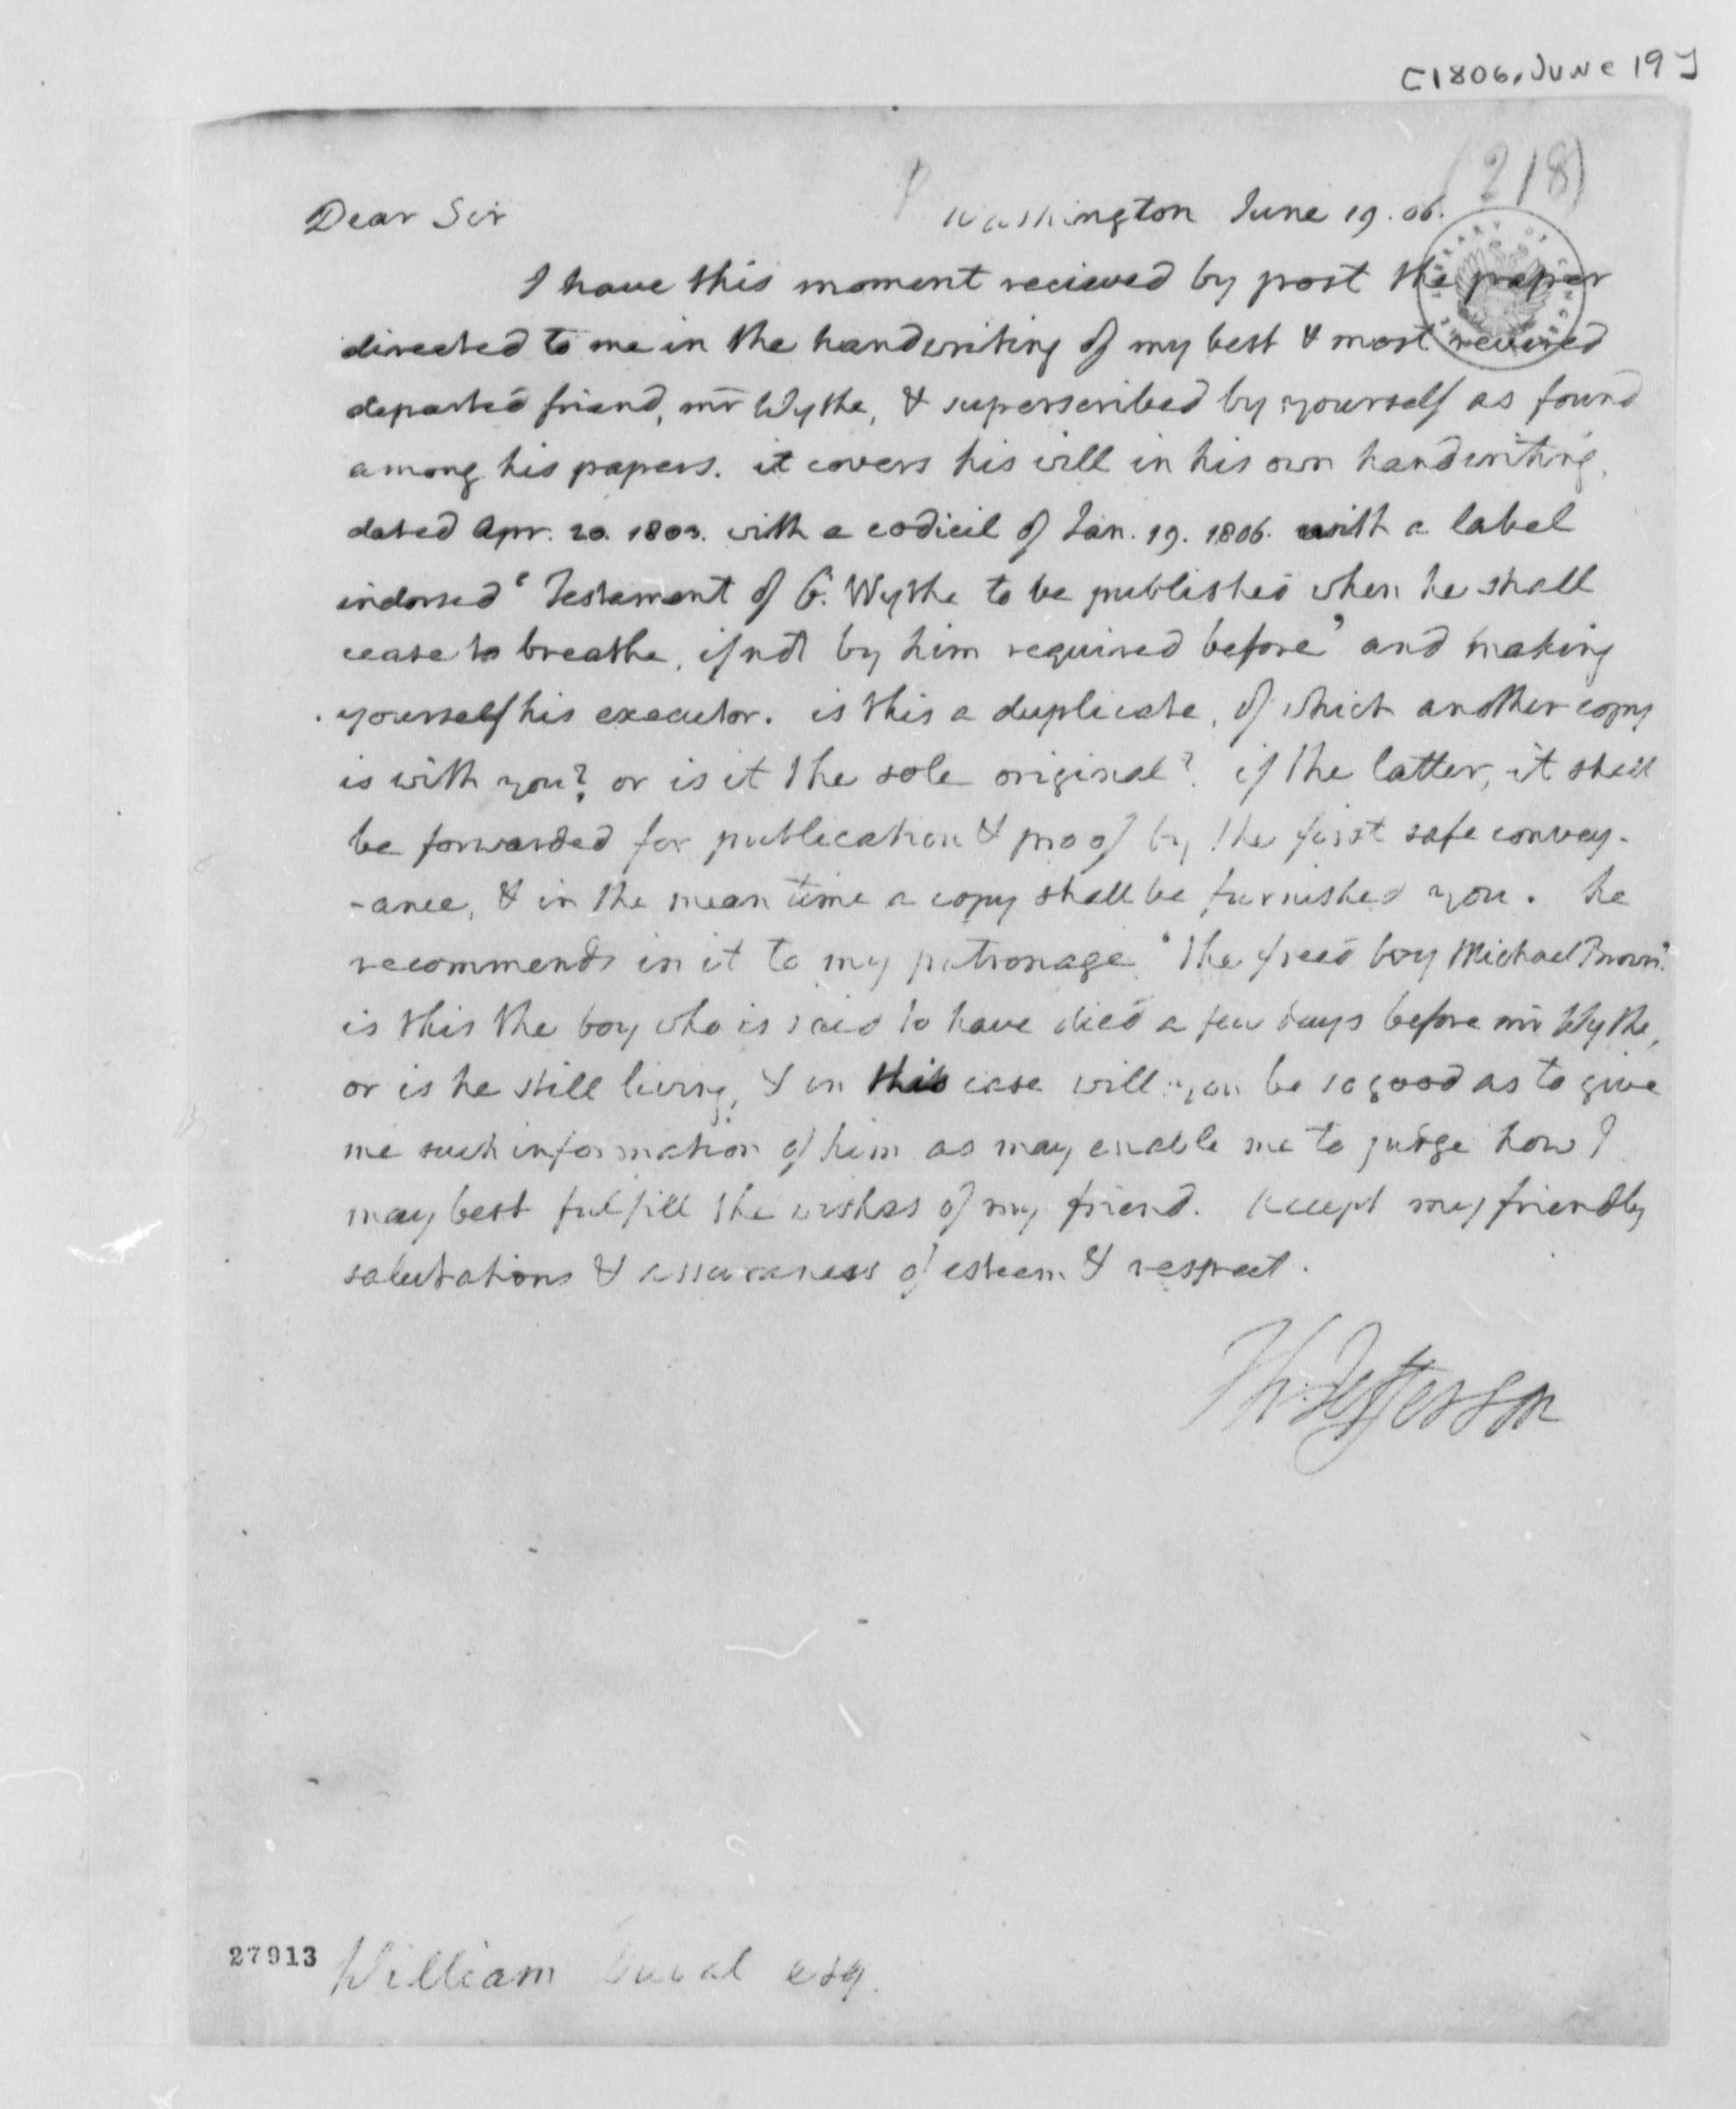 [1806, June 19]
(218)
Dear Sir Washington June 19. 06.
I have this moment recieved by post the paper
directed to me in the handwriting of my best & most revered
departed friend, mr Wythe, & superscribed by yourself as found
among his papers. it covers his will in his own handwriting,
dated Apr. 20. 1803. with a codicil of Jan. 19. 1806. with a label
indorsed ‘Testament of G. Wythe to be published when he shall
cease to breathe, if not by him required before’ and making
yourself his executor. is this a duplicate, of which another copy
is with you? or is it the sole original? if the latter, it shall
be forwarded for publication & proof by the first safe convey-
-ance, & in the mean time a copy shall be furnished you. he
recommends in it to my patronage ‘the freed boy Michael Brown.’
is this the boy who is said to have died a few days before mr Wythe,
or is he still living, & in this case will you be so good as to give
me such information of him as may enable me to judge how I
may best fulfill the wishes of my friend. Accept my friendly
salutations & assurances of esteem & respect.
Th: Jefferson
27913
William Duval esq.